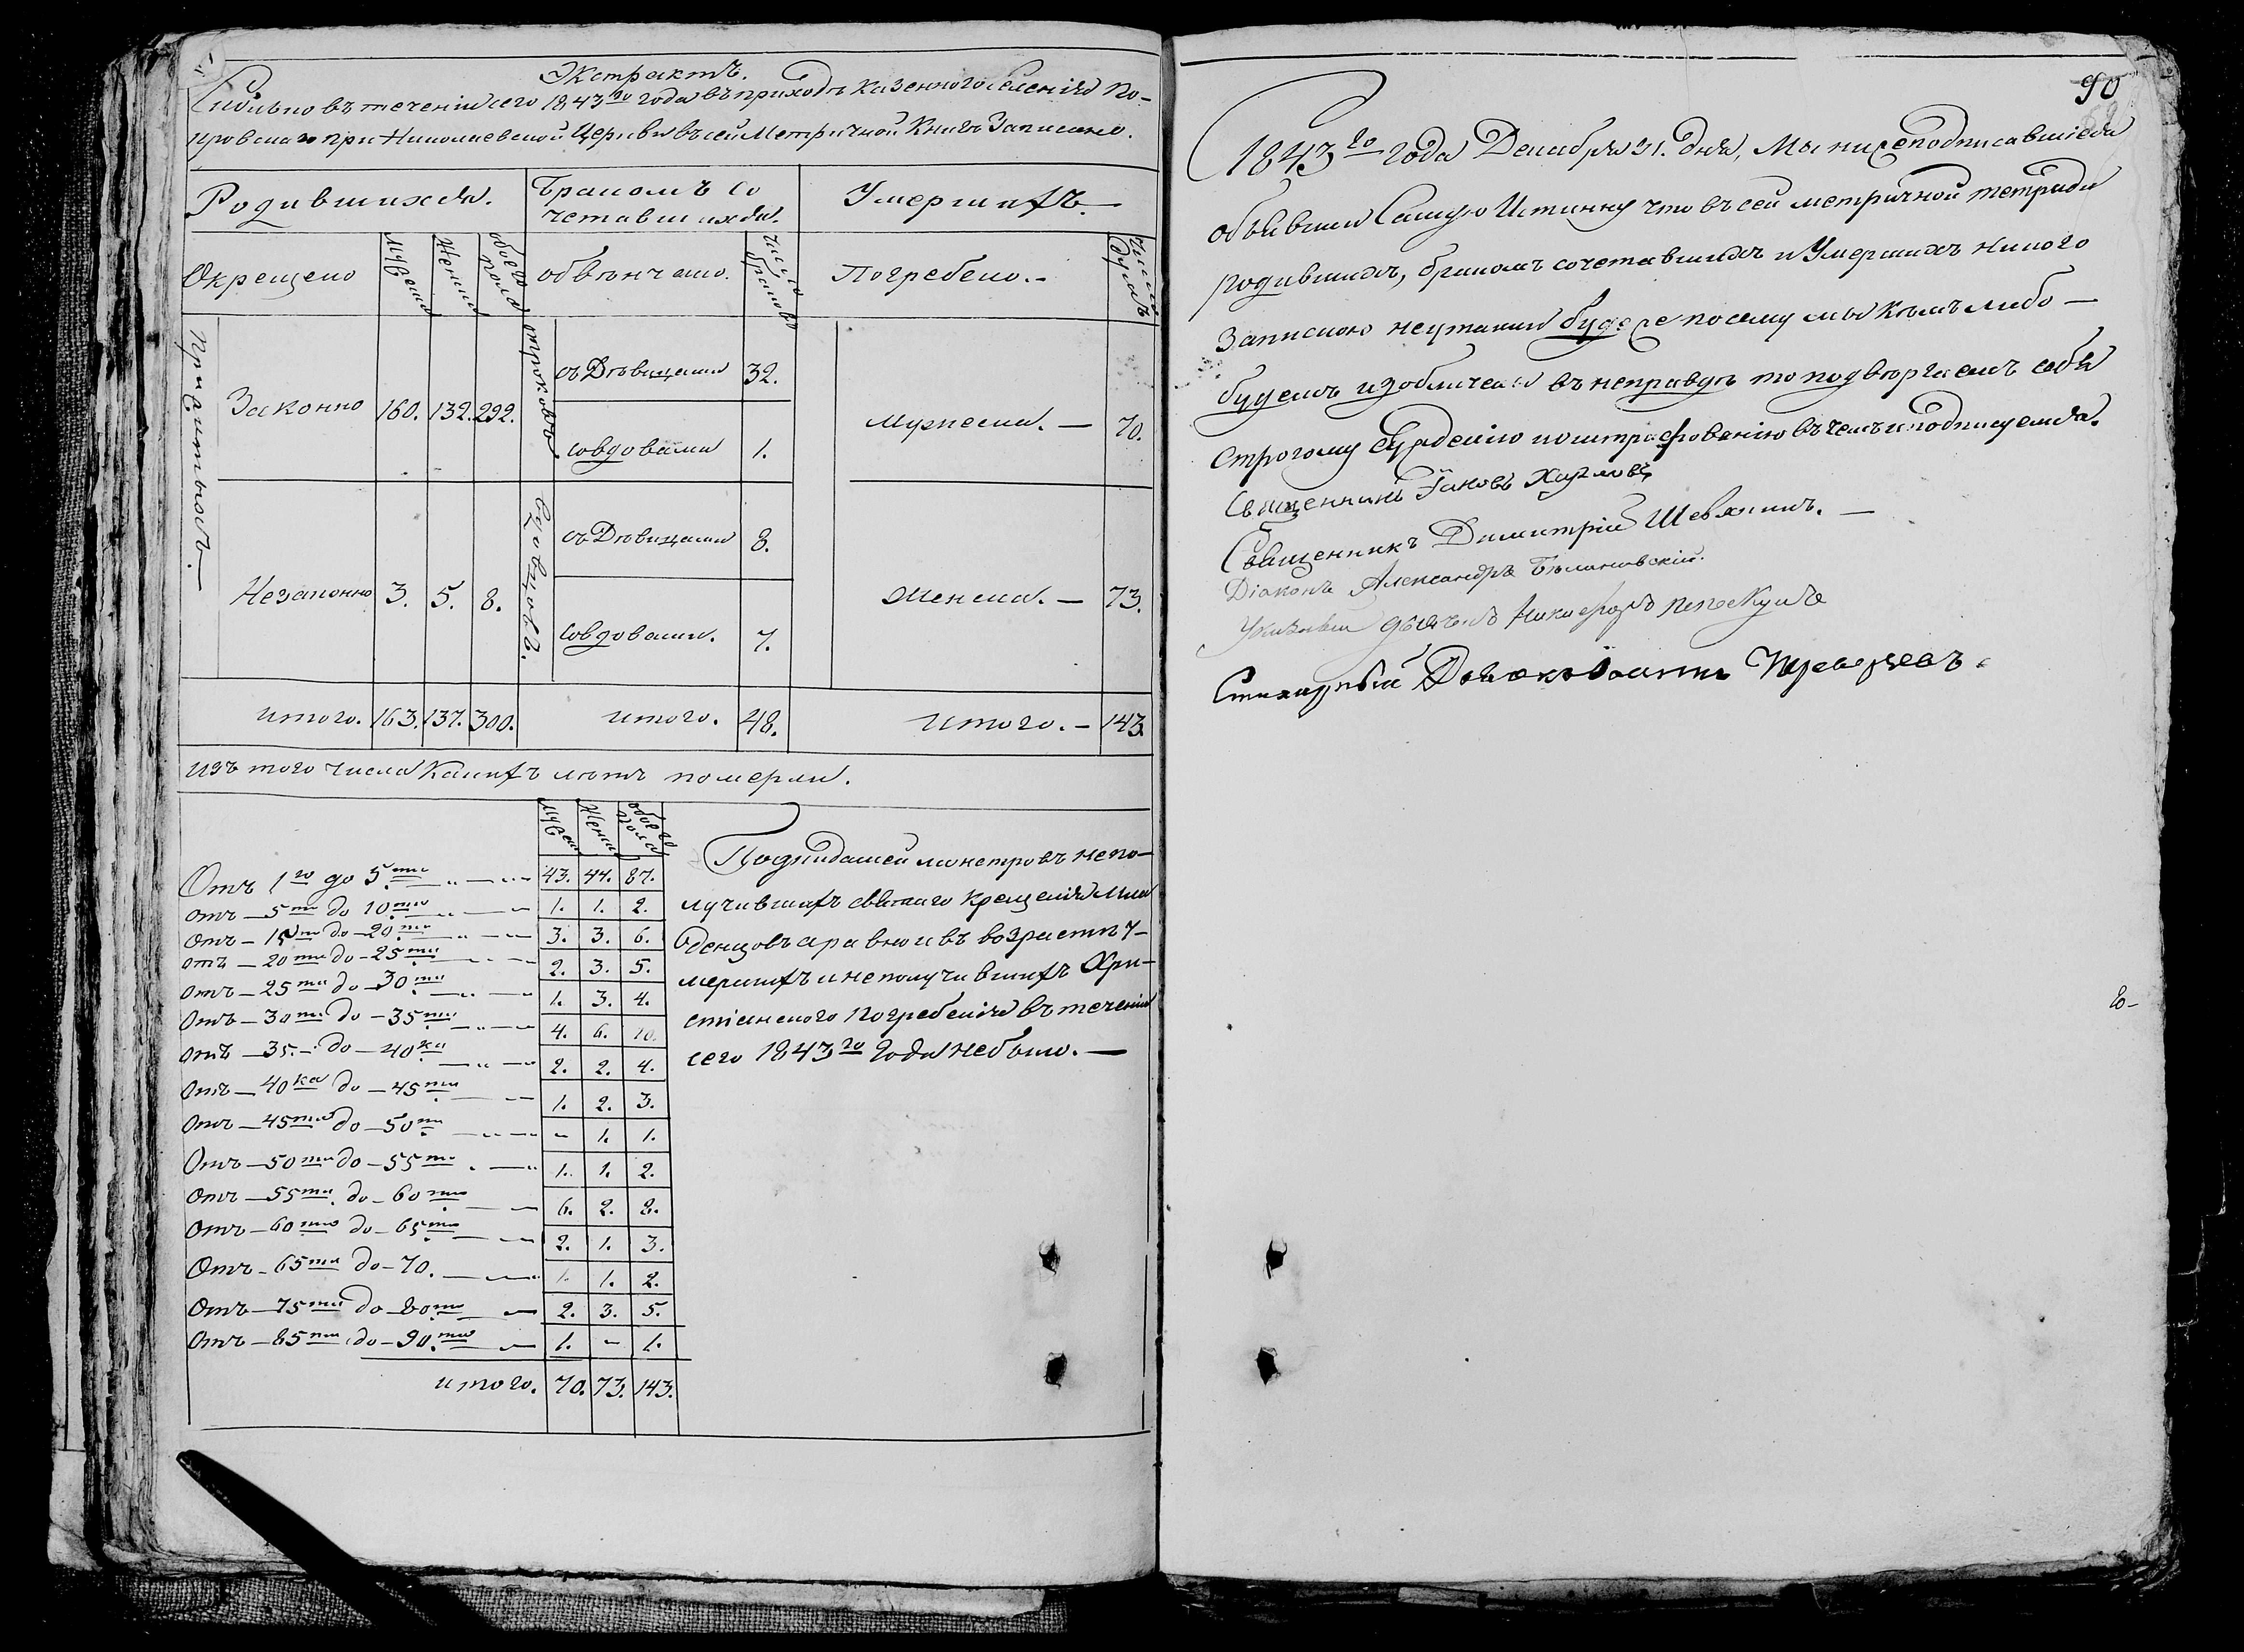 Экстрактъ.
Сколько въ теченіи сего 1843го года въ приходѣ казенного селенія По-
кровскаго при Николаевской Церкви въ сей Метричной Книгѣ Записано.
Родившихся.
Бракомъ со
четавшихся.
Умершихъ
Окрещено
Мужеска
Женска
обоего пола
обвѣнчано.
число браковъ
Погребено.-
число душъ
Прижитыхъ
Законно 160. 132. 292.
отроковъ
съ Дѣвицами 32.
совдовами 1.
Мужеска. — 70.
Незаконно 3. 5. 8.
Вдовцовъ.
съ Дѣвицами 8.
Совдовами. 7.
Женска. — 73.
итого. 163. 137. 300.
итого. 48.
итого. - 143.
изъ того числа какихъ лѣтъ померли.
Муже Женск обоего пола
Отъ 1го до 5ти 43. 44. 87.
отъ — 5ти до 10ти 1. 1. 2.
Отъ — 15ти до — 20ти 3. 3. 6.
отъ — 20ти до — 25ти 2. 3. 5.
Отъ — 25ти до — 30ти 1. 3. 4.
Отъ — 30ти до — 35ти 4. 6. 10.
Отъ — 35. - до — 40ка 2. 2. 4.
Отъ — 40ка до — 45ти 1. 2. 3.
Отъ — 45ти до — 50ти - 1. 1.
Отъ — 50ти до — 55ти 1. 1. 2.
Отъ — 55ти до — 60ти 6. 2. 8.
Отъ — 60ти до — 65ти 2. 1. 3.
Отъ — 65ти до — 70. 1. 1. 2.
Отъ — 75ти до — 80ти 2. 3. 5.
Отъ — 85ти до — 90ти 1. - 1.
итого. 70. 73. 143.
Подкидашей монстровъ непо-
лучившихъ святаго крещенія мла
денцовъ аравно и въ возрастѣ у-
мершихъ и неполучившихъ Хри-
стіанского погребенія въ теченіи
сего 1843го года небыло. —
90
1843го года Декабря 31. Дня, Мы нижеподписавшіеся
объявили Самую Истинну что въ сей метричной тетради
родившихъ, бракомъ сочетавшихъ и Умершихъ никого
Запискою неутаили будеже посему мы кѣмъ либо —
будемъ изобличены въ неправдѣ то подвѣргаемъ себя
строгому сужденію и оштрафованію въ чемъ и подписуемся.
Священникъ Іаковъ
Священникъ Димитрій Шевякинъ. —
Діаконъ Александръ
Никифоръ
Стихарный